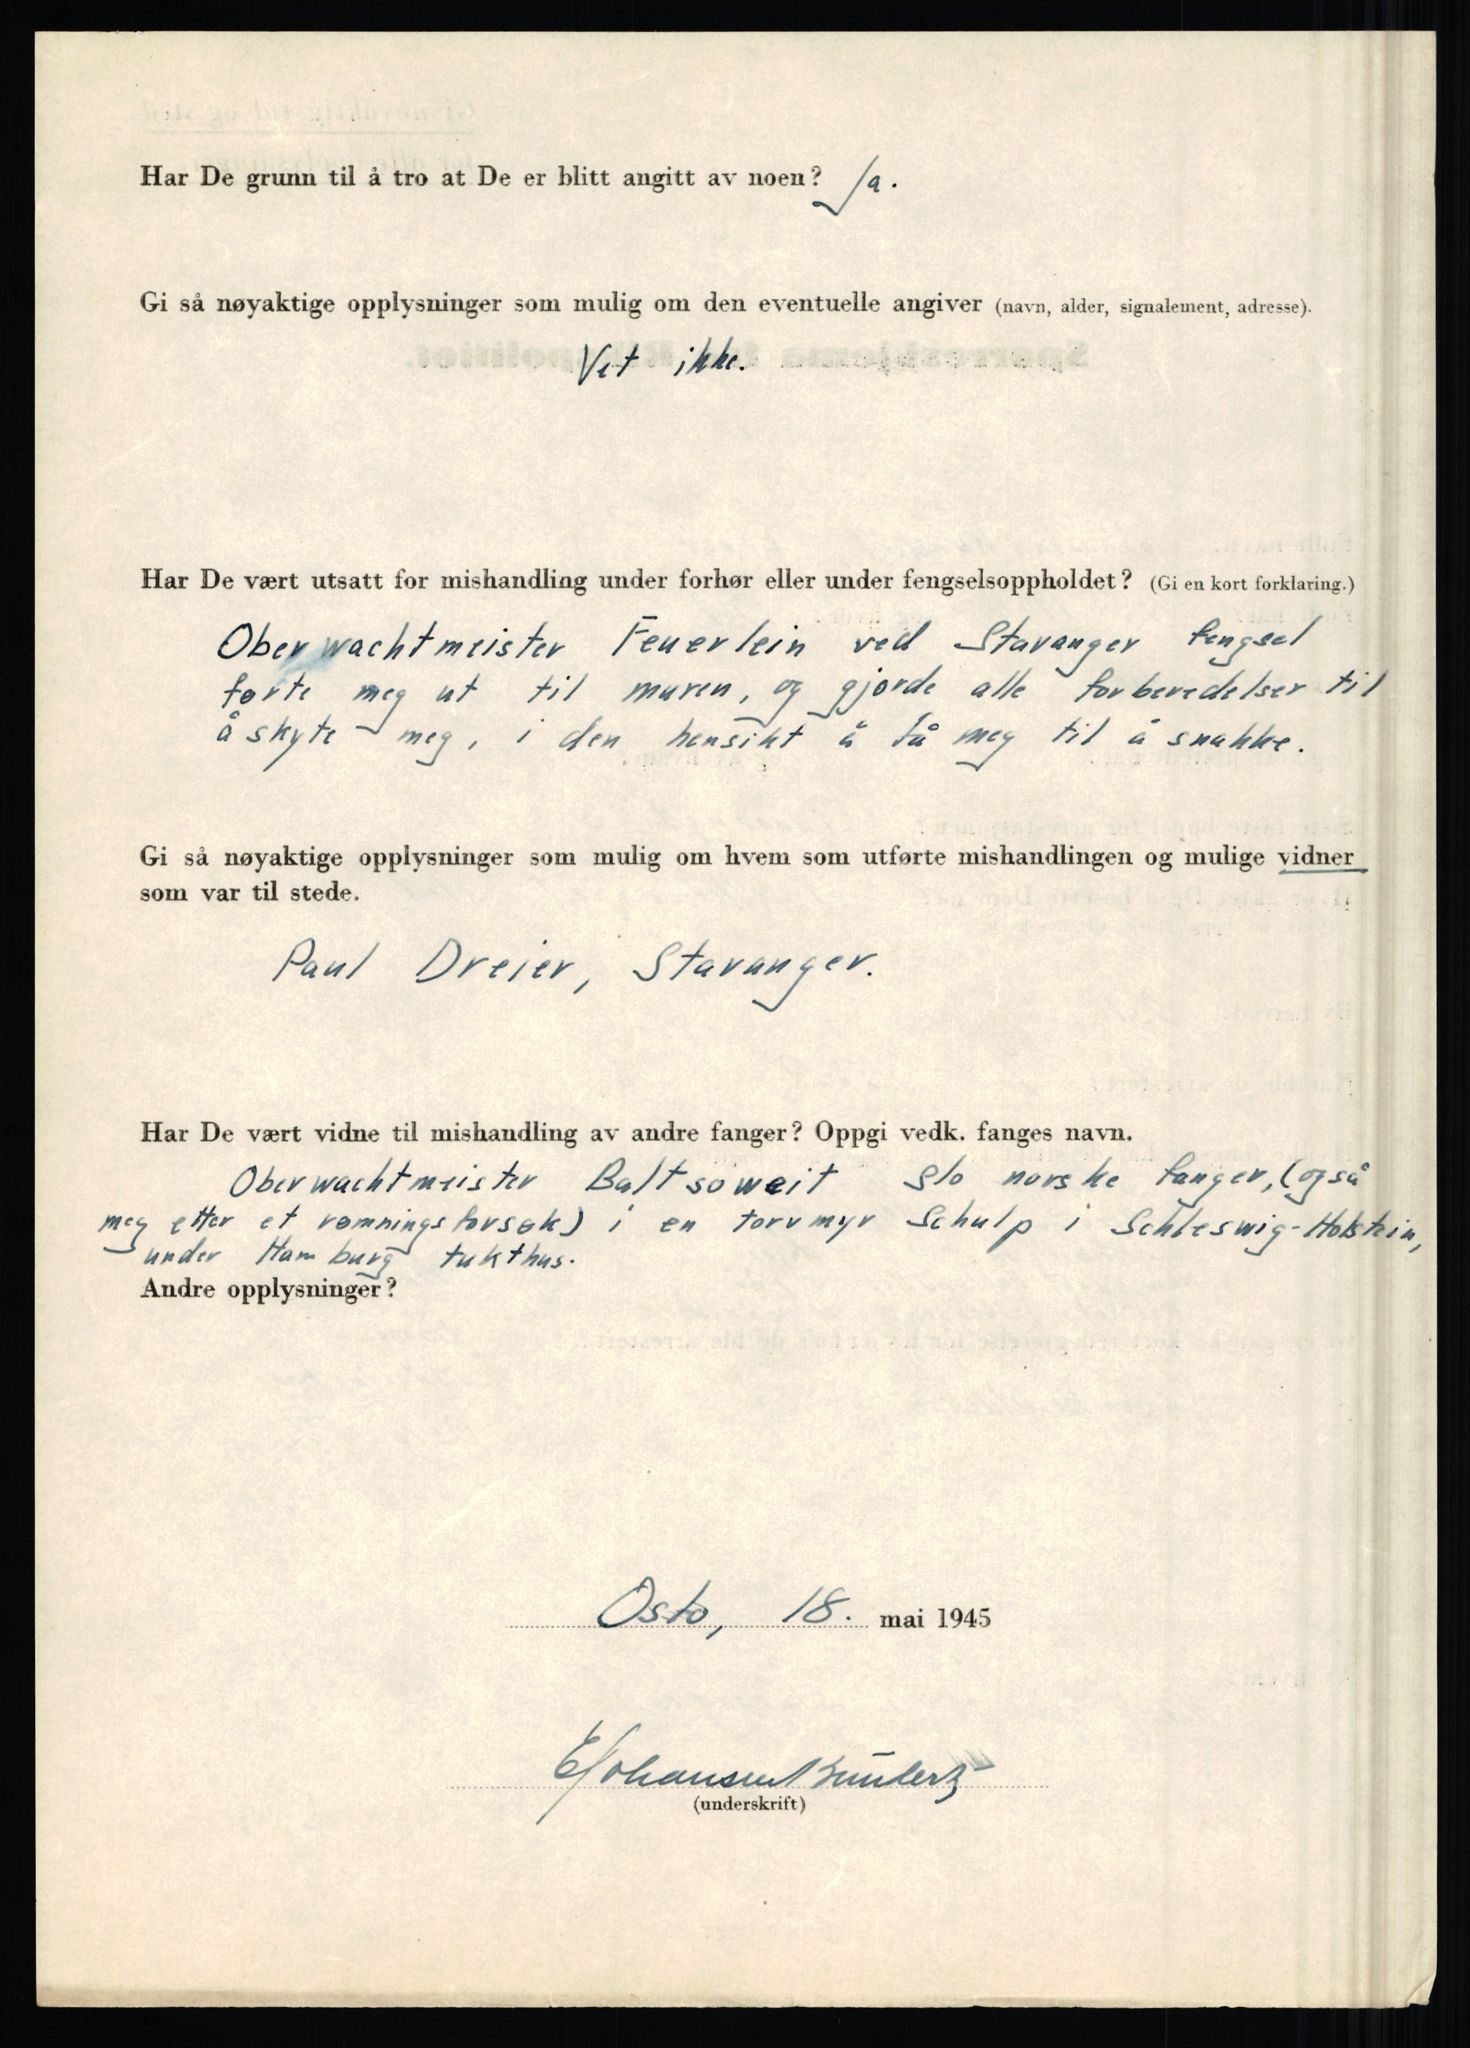 Har De grunn til å tro at De er blitt angitt av noen? Ja.
Gi så nøyaktige opplysninger som mulig om den eventuelle angiver (navn, alder, signalement, adresse).
Vet ikke.
Har De vært utsatt for mishandling under forhør eller under fengselsoppholdet? (Gi en kort forklaring.)
Oberwachtmeister Feuerlein ved Stavanger fengsel
førte meg ut til muren, og gjorde alle forberedelser til
å skyte meg, i den hensikt å få meg til å snakke.
Gi så nøyaktige opplysninger som mulig om hvem som utførte mishandlingen og mulige vidner
som var til stede.
Paul Dreier, Stavanger.
Har De vært vidne til mishandling av andre fanger? Oppgi vedk. fanges navn.
Oberwachtmeister Baltsoweit slo norske fanger, (også
meg etter et rømningsforsøk) i en torvmyr Schulp i Schleswig-Holstein,
under Hamburg tukthus.
Andre opplysninger?
Oslo, 18. mai 1945
E Johansen
(underskrift)